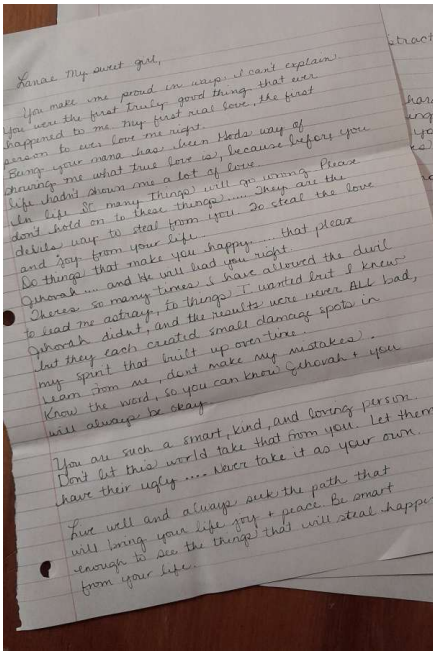 Lanae My sweet girl,
You make me proud in ways I can't explain.
You were the first truly good thing that ever
happened to me. My first real love, the first
person to ever love me right.
Being your mama has been Gods way of
showing me what true love is, because before you
life hadn't shown me a lot of love.
In life SO many Things will go wrong. Please
don't hold on to these things..... They are the
devils way to steal from you. To steal the love
and joy from your life.
Do things that make you happy..... that please
Jehovah.... and He will lead you right.
Theres so many times I have allowed the devil
to lead me astray, to things I wanted but I knew
Jehovah didnt, and the results were never ALL bad,
but they each created small damage spots in
my spirit that built up over time.
Learn from me, dont make my mistakes.
Know the word, so you can know Jehovah + you
will always be okay.
You are such a smart, kind, and loving person.
Don't let this world take that from you. Let them
have their ugly.... Never take it as your own.
Live well and always seek the path that
will bring your life joy + peace. Be smart
enough to see the things that will steal happi
from your life.